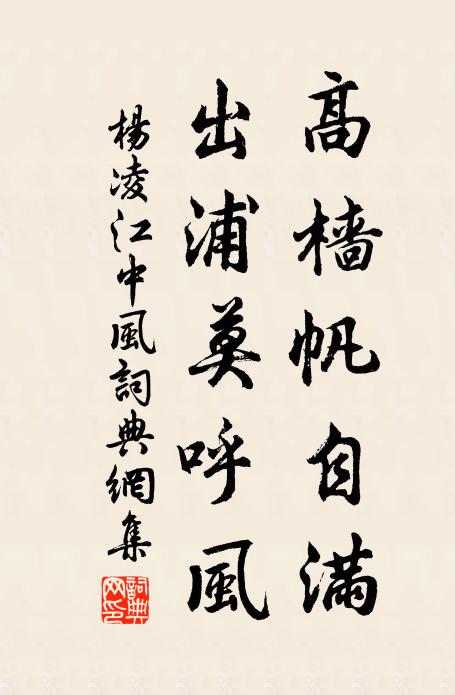 高檣帆自滿
出浦莫呼風
楊凌江中風詞典網集
詞典
网印